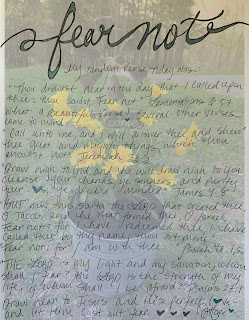 fear not
My random verse today was
Thou drawest near in the day that I called upon
thee: thou saidst, Fear not. Lamentations 3:57
What a beautiful verse. Several other verses
came to mind.
Call unto me, and I will answer thee and shew
thee great and mighty things, which thou
knowest not. Jeremiah 33:3
Draw nigh to God, and he will draw nigh to you.
Cleanse your hands, ye sinners; and purify
your hearts, ye double minded. James 4:8
But now thus saith the LORD that created thee,
O Jacob, and he that formed thee, O Israel,
Fear not: for I have redeemed thee, I have
called thee by thy name; thou art mine.
Fear not, for I am with thee. Isaiah 43:1,5
The LORD is my light and my salvation; whom
shall I fear? the LORD is the strength of my
life; of whom shall I be afraid? Psalms 27:1
Draw near to Jesus and He's perfect love
and let Him cast out fear